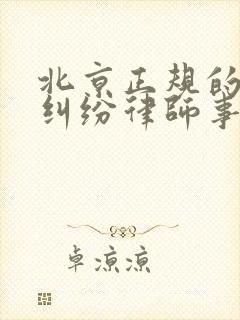 北京正规的
纠纷律师事
卓凉凉